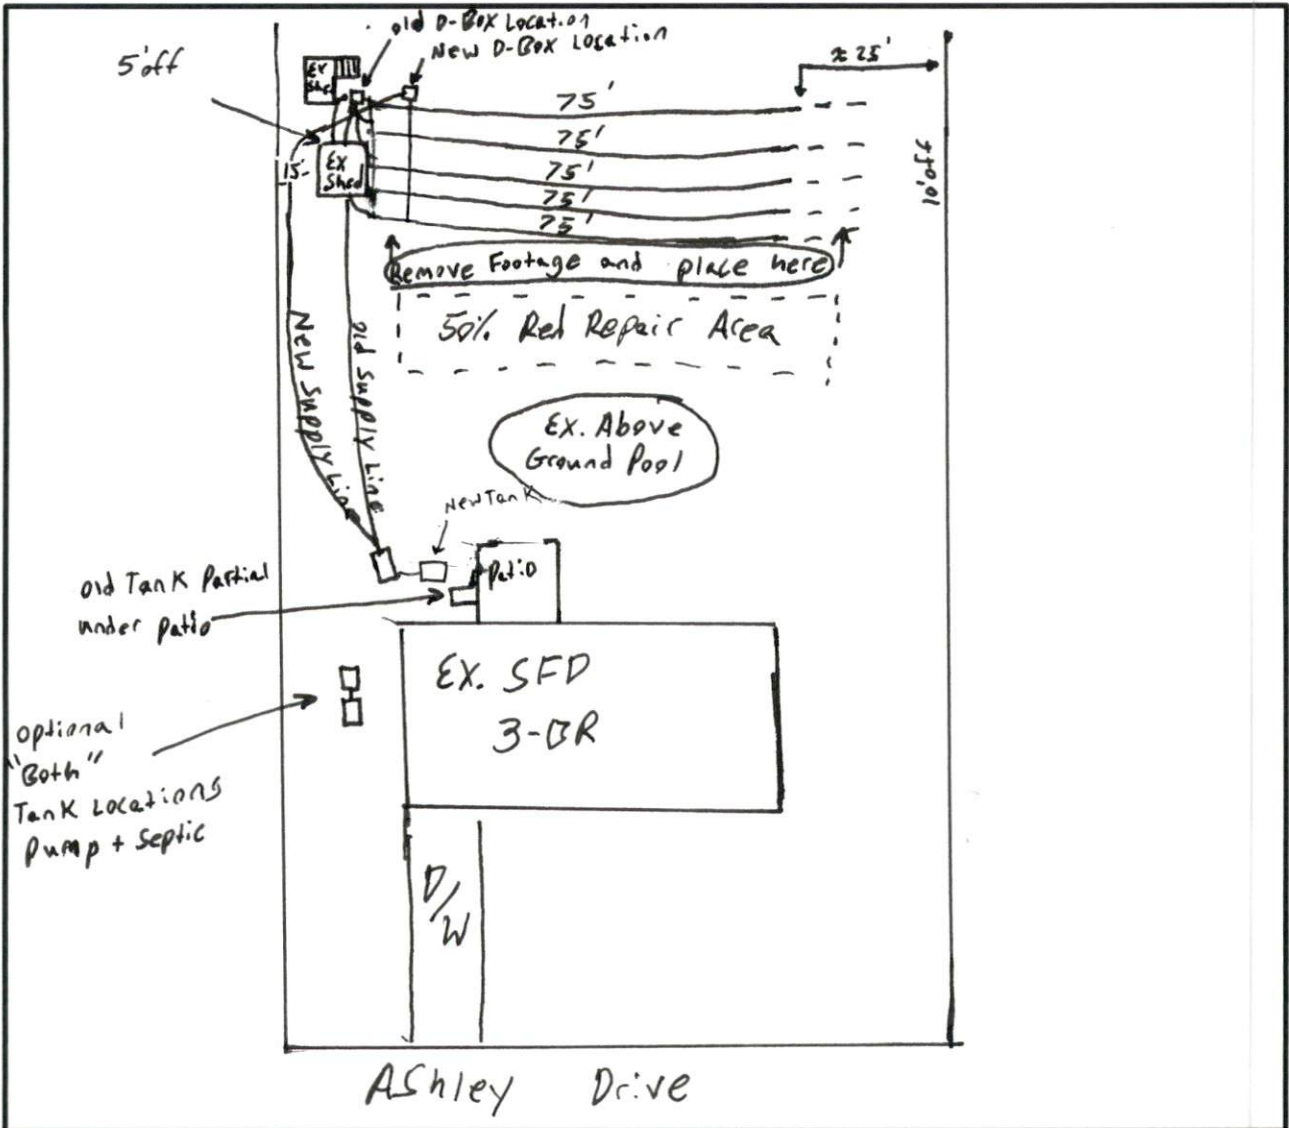 old D-Box Location
New D-Box Location
5' off
≈ 25'
Ex
Shed
75'
75'
75'
75'
75'
15'
Ex
Shed
10' off
Remove Footage and place here
50% Red Repair Area
New Supply Line
old Supply Line
Ex. Above
Ground Pool
New Tank
Patio
old Tank Partial
under patio
EX. SFD
3-BR
optional
"Both"
Tank Locations
Pump + Septic
D/W
Ashley Drive